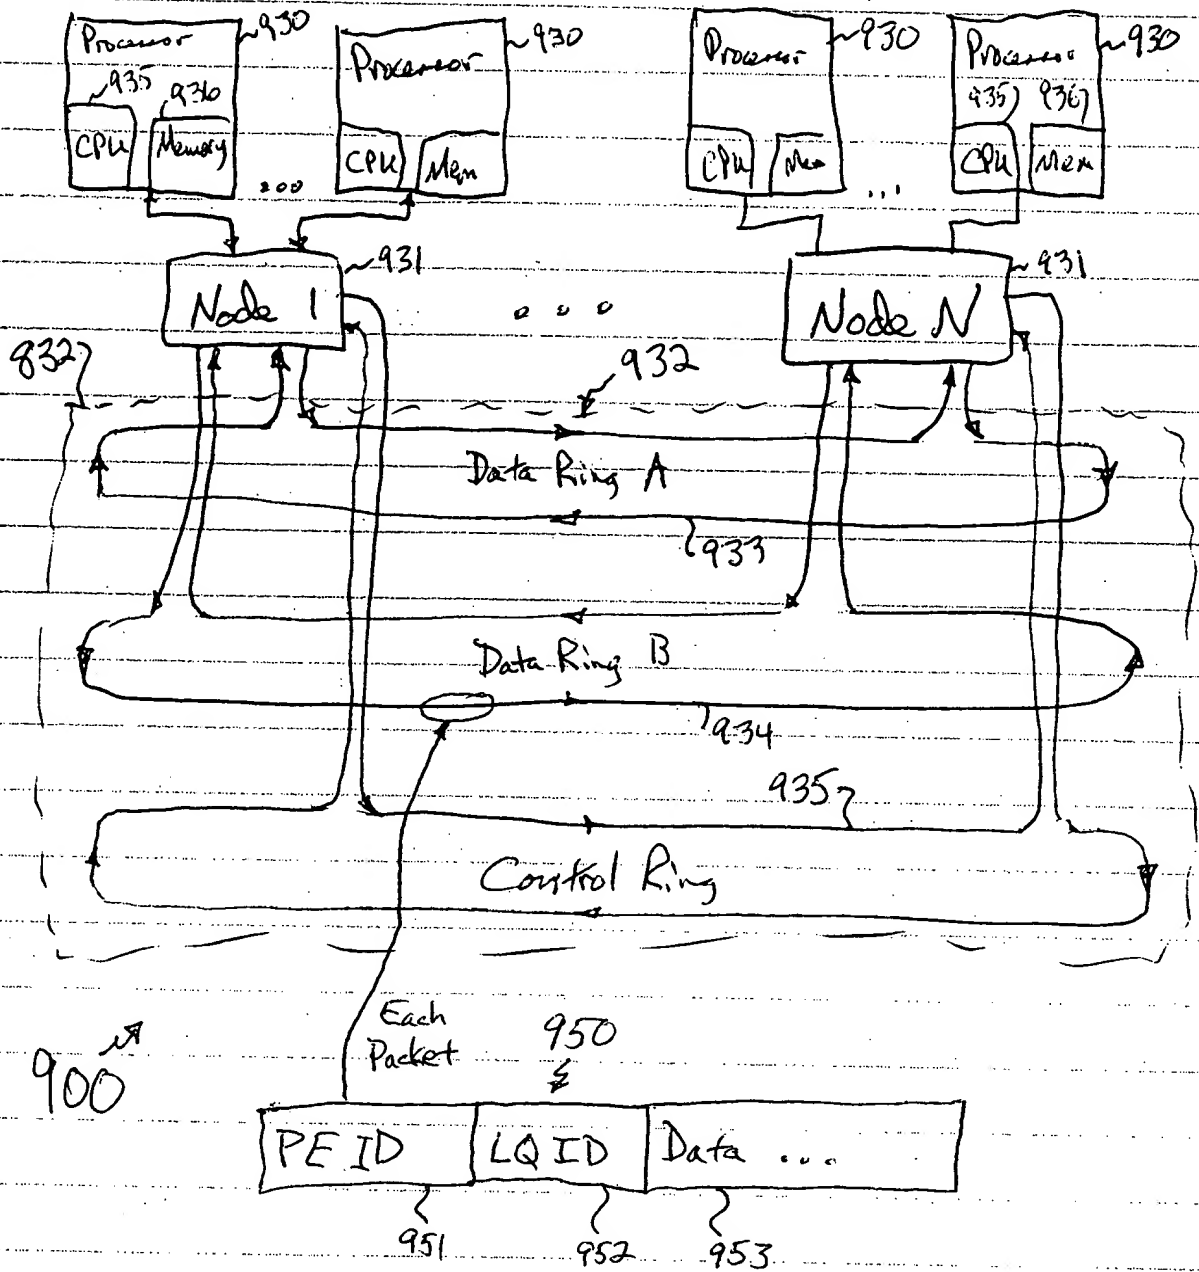 Processor 930
935 936
CPU Memory
Processor 930
CPU Mem
Processor 930
CPU Mem
Processor 930
935 936
CPU Mem
...
...
Node 1 931
...
Node N 931
832
932
Data Ring A
933
Data Ring B
934
935
Control Ring
Each
Packet
950
900
PE ID LQ ID Data ...
951 952 953